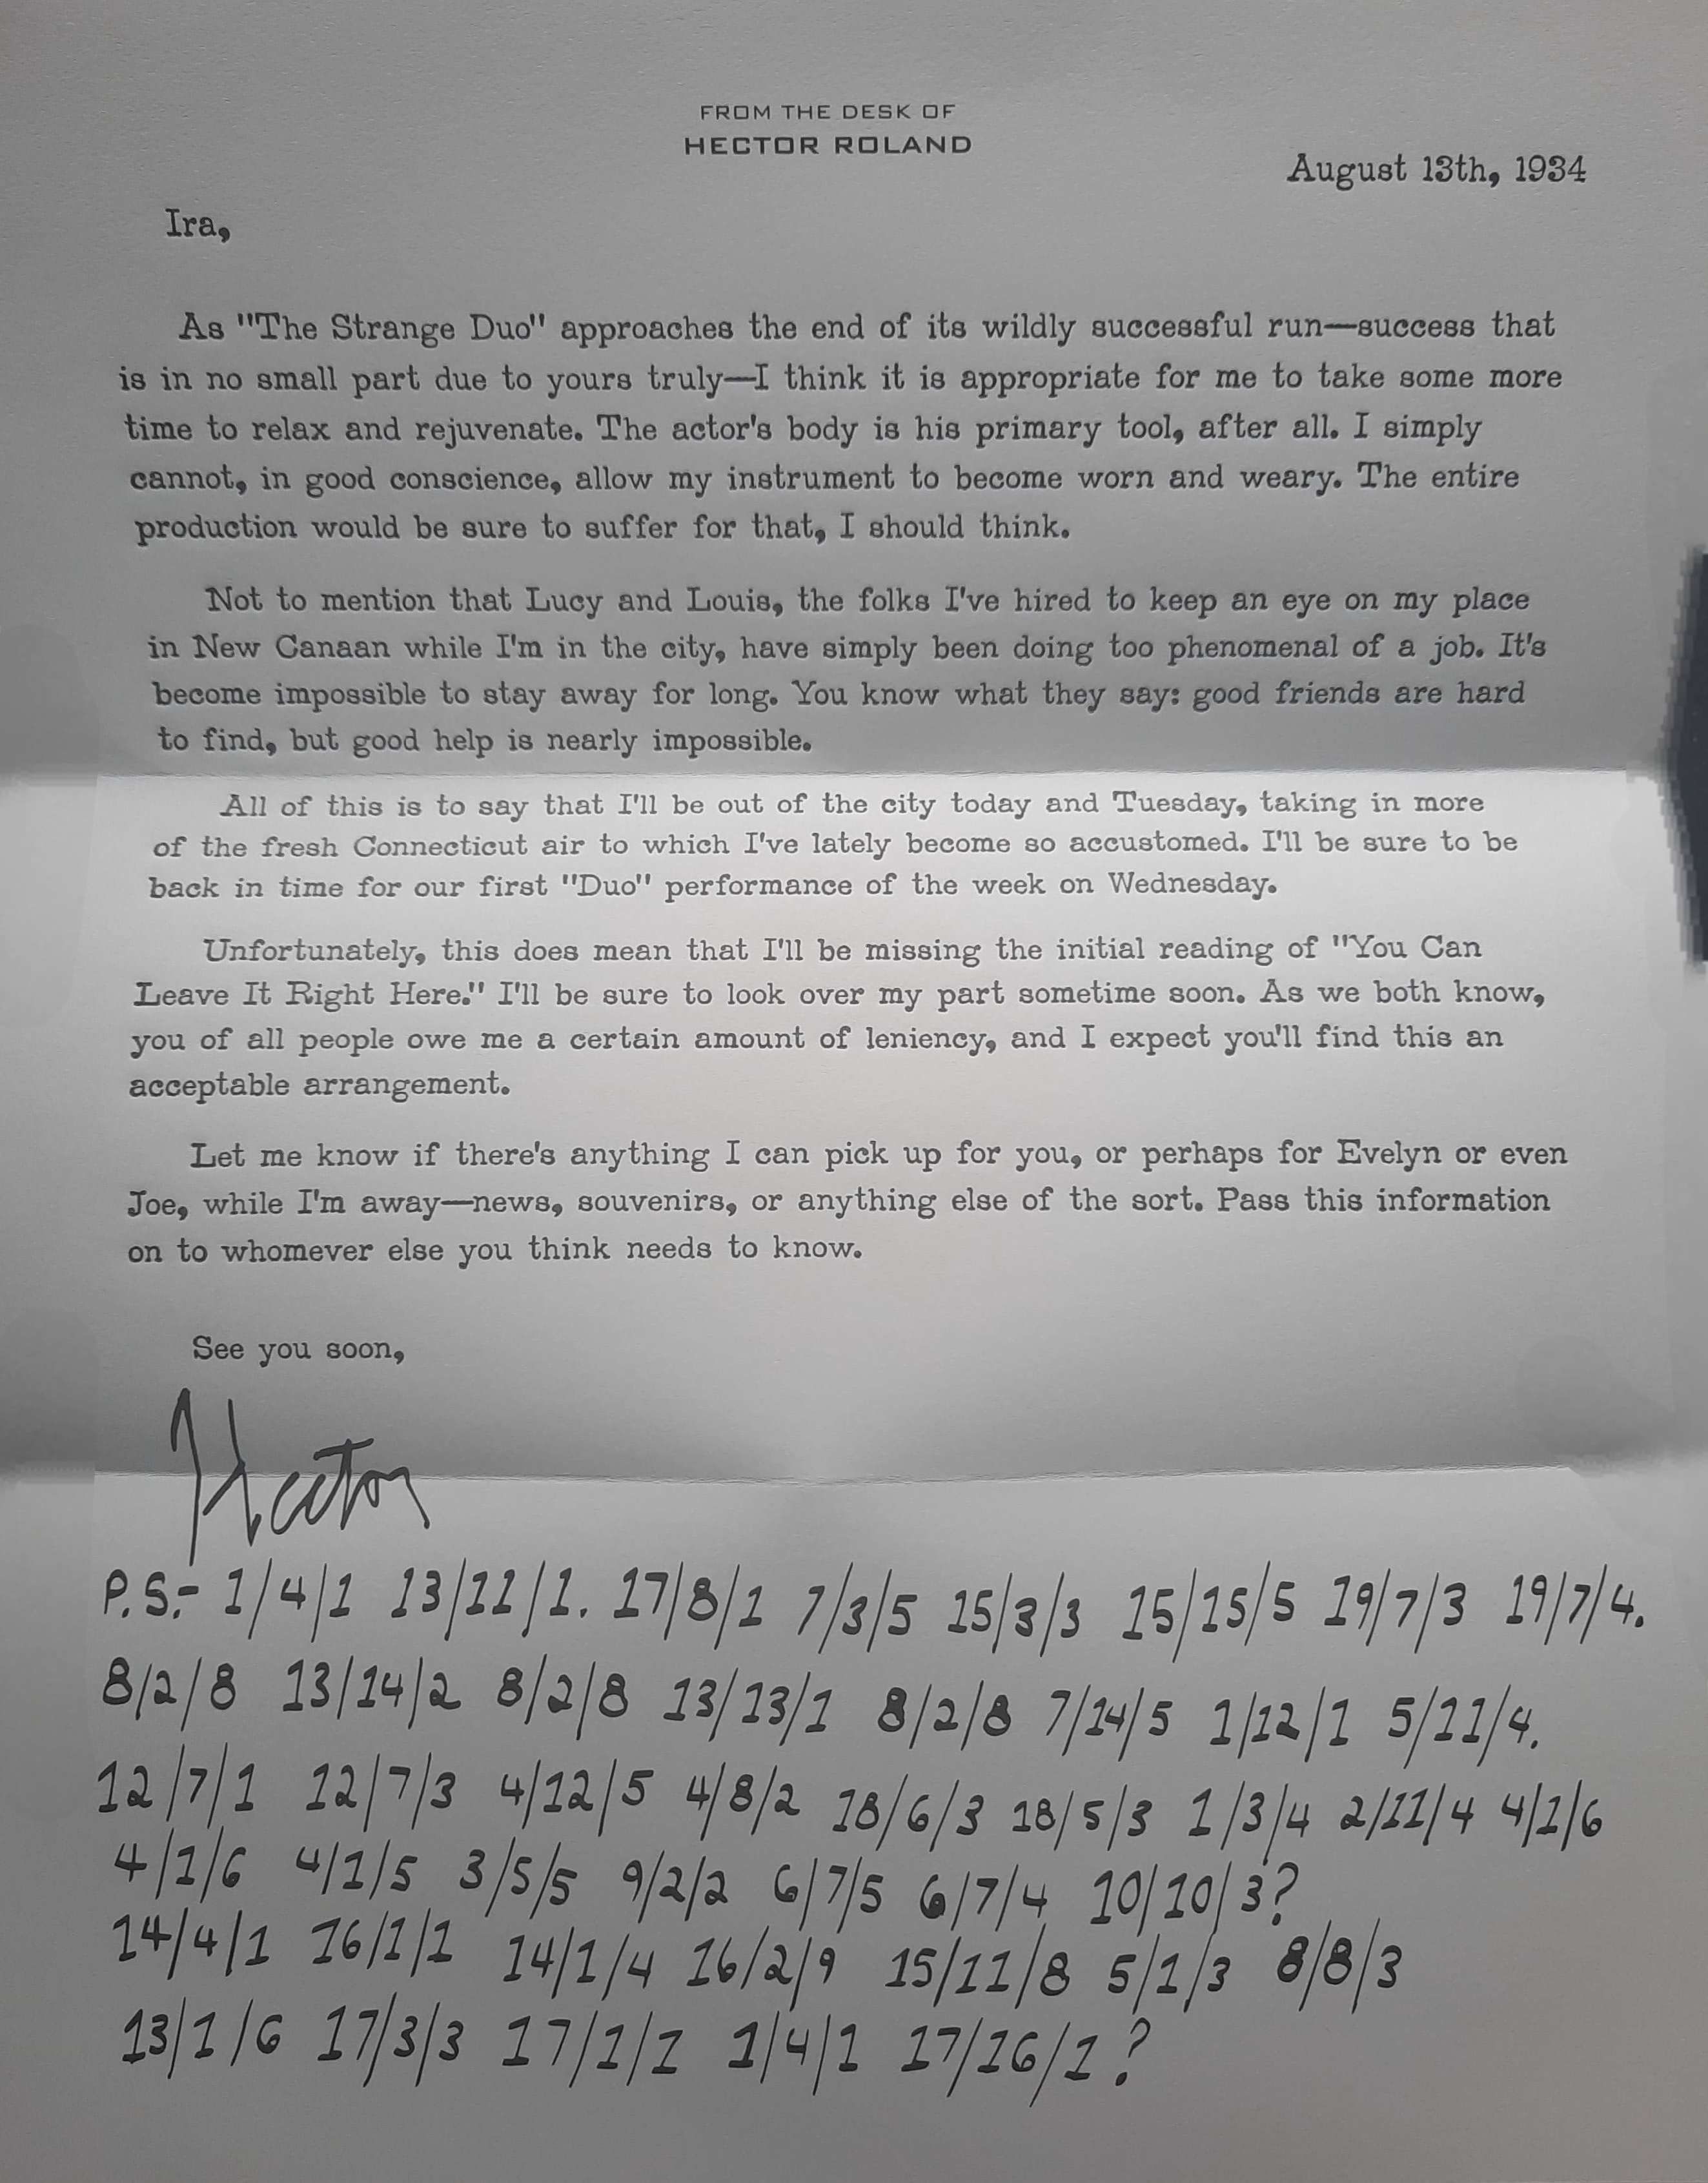 FROM THE DESK OF
HECTOR ROLAND
August 13th, 1934
Ira,
As "The Strange Duo" approaches the end of its wildly successful run—success that
is in no small part due to yours truly—I think it is appropriate for me to take some more
time to relax and rejuvenate. The actor's body is his primary tool, after all. I simply
cannot, in good conscience, allow my instrument to become worn and weary. The entire
production would be sure to suffer for that, I should think.
Not to mention that Lucy and Louis, the folks I've hired to keep an eye on my place
in New Canaan while I'm in the city, have simply been doing too phenomenal of a job. It's
become impossible to stay away for long. You know what they say: good friends are hard
to find, but good help is nearly impossible.
All of this is to say that I'll be out of the city today and Tuesday, taking in more
of the fresh Connecticut air to which I've lately become so accustomed. I'll be sure to be
back in time for our first "Duo" performance of the week on Wednesday.
Unfortunately, this does mean that I'll be missing the initial reading of "You Can
Leave It Right Here." I'll be sure to look over my part sometime soon. As we both know,
you of all people owe me a certain amount of leniency, and I expect you'll find this an
acceptable arrangement.
Let me know if there's anything I can pick up for you, or perhaps for Evelyn or even
Joe, while I'm away—news, souvenirs, or anything else of the sort. Pass this information
on to whomever else you think needs to know.
See you soon,
Hector
P.S.- 1/4/1 13/11/1. 17/8/1 7/3/5 15/3/3 15/15/5 19/7/3 19/7/4.
8/2/8 13/14/2 8/2/8 13/13/1 8/2/8 7/14/5 1/12/1 5/11/4.
12/7/1 12/7/3 4/12/5 4/8/2 18/6/3 18/5/3 1/3/4 2/11/4 4/1/6
4/1/6 4/1/5 3/5/5 9/2/2 6/7/5 6/7/4 10/10/3?
14/4/1 16/1/1 14/1/4 16/2/9 15/11/8 5/1/3 8/8/3
13/1/6 17/3/3 17/1/1 1/4/1 17/16/1?